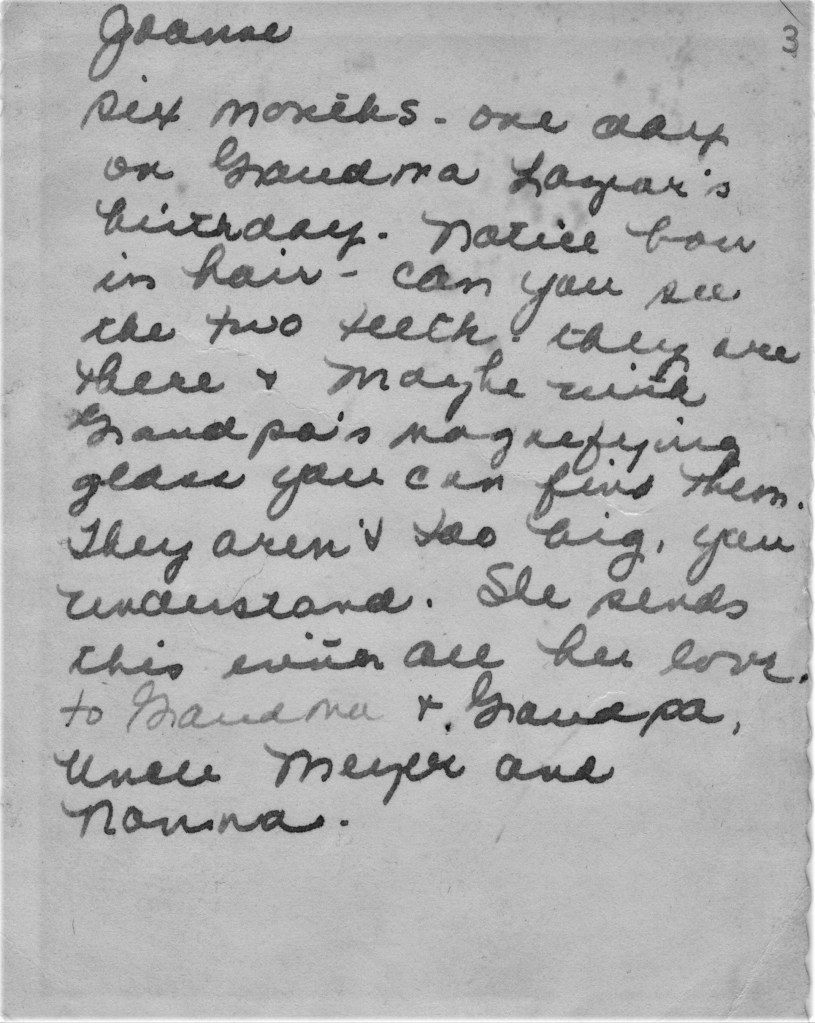 Joanne 3
six months - one day
on Grandma Lazar's
birthday. Notice bow
in hair - can you see
the two teeth. they are
there & Maybe with
Grandpa's magnifying
glass you can find them.
They aren't too big, you
understand. She sends
this with all her love.
to Grandma & Grandpa,
Uncle Meyer and
Norma.